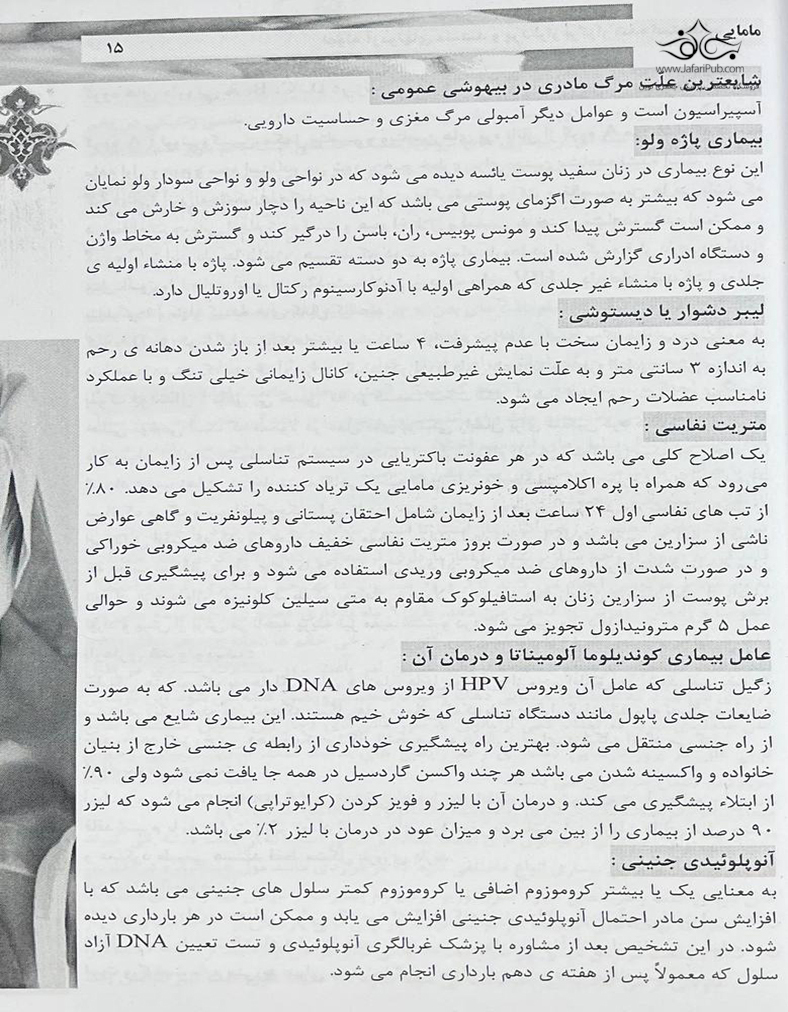 مامایی
۱۵
www.JafariPub.com
شایعترین علت مرگ مادری در بیهوشی عمومی :
آسپیراسیون است و عوامل دیگر آمبولی مرگ مغزی و حساسیت دارویی.
بیماری پاژه ولو:
این نوع بیماری در زنان سفید پوست یائسه دیده می شود که در نواحی ولو و نواحی سودار ولو نمایان
می شود که بیشتر به صورت اگزمای پوستی می باشد که این ناحیه را دچار سوزش و خارش می کند
و ممکن است گسترش پیدا کند و مونس پوبیس، ران، باسن را درگیر کند و گسترش به مخاط واژن
و دستگاه ادراری گزارش شده است. بیماری پاژه به دو دسته تقسیم می شود. پاژه با منشاء اولیه ی
جلدی و پاژه با منشاء غیر جلدی که همراهی اولیه با آدنوکارسینوم رکتال یا اوروتلیال دارد.
لیبر دشوار یا دیستوشی :
به معنی درد و زایمان سخت با عدم پیشرفت، ۴ ساعت یا بیشتر بعد از باز شدن دهانه ی رحم
به اندازه ۳ سانتی متر و به علّت نمایش غیرطبیعی جنین، کانال زایمانی خیلی تنگ و با عملکرد
نامناسب عضلات رحم ایجاد می شود.
متریت نفاسی :
یک اصلاح کلی می باشد که در هر عفونت باکتریایی در سیستم تناسلی پس از زایمان به کار
می‌رود که همراه با پره اکلامپسی و خونریزی مامایی یک تریاد کننده را تشکیل می دهد. ۸۰٪
از تب های نفاسی اول ۲۴ ساعت بعد از زایمان شامل احتقان پستانی و پیلونفریت و گاهی عوارض
ناشی از سزارین می باشد و در صورت بروز متریت نفاسی خفیف داروهای ضد میکروبی خوراکی
و در صورت شدت از داروهای ضد میکروبی وریدی استفاده می شود و برای پیشگیری قبل از
برش پوست از سزارین زنان به استافیلوکوک مقاوم به متی سیلین کلونیزه می شوند و حوالی
عمل ۵ گرم مترونیدازول تجویز می شود.
عامل بیماری کوندیلوما آلومیناتا و درمان آن :
زگیل تناسلی که عامل آن ویروس HPV از ویروس های DNA دار می باشد. که به صورت
ضایعات جلدی پاپول مانند دستگاه تناسلی که خوش خیم هستند. این بیماری شایع می باشد و
از راه جنسی منتقل می شود. بهترین راه پیشگیری خودداری از رابطه ی جنسی خارج از بنیان
خانواده و واکسینه شدن می باشد هر چند واکسن گاردسیل در همه جا یافت نمی شود ولی ۹۰٪
از ابتلاء پیشگیری می کند. و درمان آن با لیزر و فویز کردن (کرایوتراپی) انجام می شود که لیزر
۹۰ درصد از بیماری را از بین می برد و میزان عود در درمان با لیزر ۲٪ می باشد.
آنوپلوئیدی جنینی :
به معنایی یک یا بیشتر کروموزوم اضافی یا کروموزوم کمتر سلول های جنینی می باشد که با
افزایش سن مادر احتمال آنوپلوئیدی جنینی افزایش می یابد و ممکن است در هر بارداری دیده
شود. در این تشخیص بعد از مشاوره با پزشک غربالگری آنوپلوئیدی و تست تعیین DNA آزاد
سلول که معمولاً پس از هفته ی دهم بارداری انجام می شود.